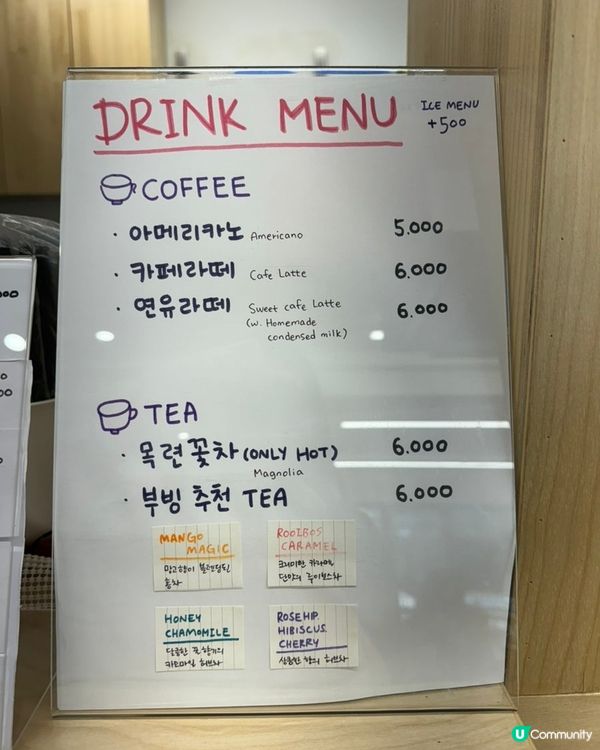 DRINK MENU
ICE MENU
+500
COFFEE
· 아메리카노 Americano 5.000
· 카페라떼 Cafe Latte 6.000
· 연유라떼 Sweet cafe Latte 6.000
(w. Homemade
condensed milk)
TEA
· 목련꽃차 (ONLY HOT) 6.000
Magnolia
· 부빙 추천 TEA 6.000
MANGO
MAGIC
망고향이 블렌딩된
홍차
ROOIBOS
CARAMEL
크리미한 카라멜
단맛의 루이보스차
HONEY
CHAMOMILE
달콤한 꿀향기의
카모마일 허브차
ROSEHIP.
HIBISCUS.
CHERRY
상큼한 향의 허브차
U Community